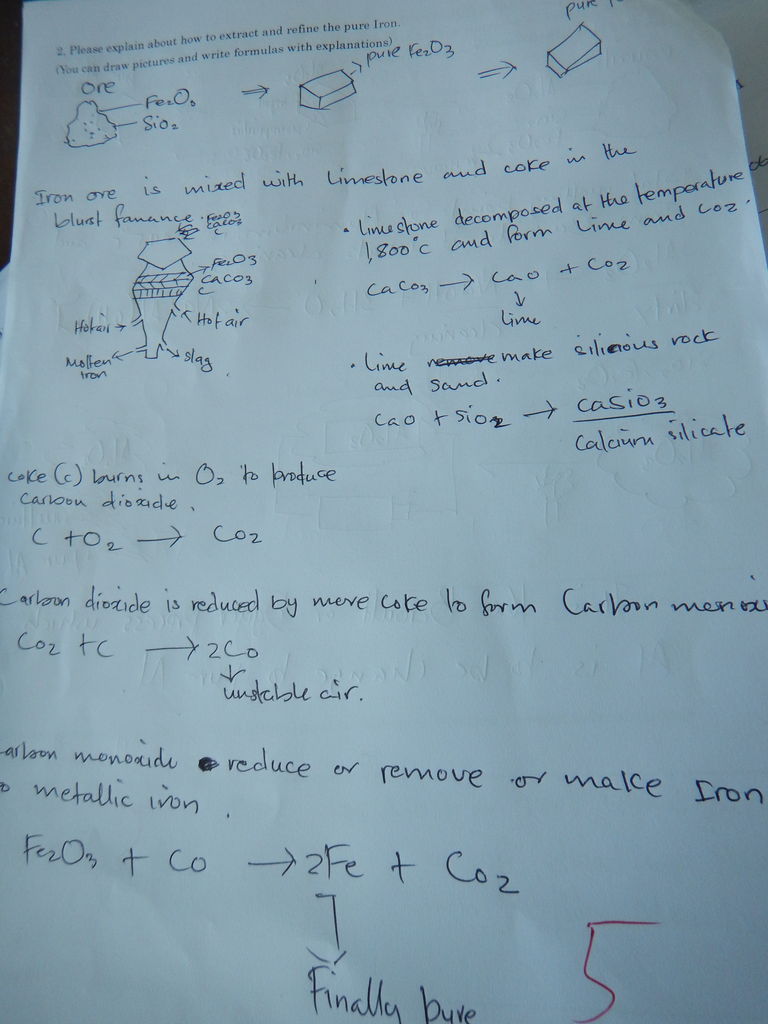 2. Please explain about how to extract and refine the pure Iron.
(You can draw pictures and write formulas with explanations)
pure
ore
Fe2O3
SiO2
⇒
pure Fe2O3
⇒
Iron ore is mixed with limestone and coke in the
blurst fanance.
Fe2O3
CaCO3
C
Fe2O3
CaCO3
C
Hot air
Hot air
Molten
iron
slag
• limestone decomposed at the temperature of
1,800°c and form lime and CO2.
CaCO3 → CaO + CO2
↓
lime
• lime remove make silicious rock
and sand.
CaO + SiO2 → CaSiO3
Calcium silicate
coke (c) burns in O2 to produce
carbon dioxide.
C + O2 → CO2
Carbon dioxide is reduced by more coke to form Carbon monox
CO2 + C → 2CO
↓
unstable air.
arbon monoxide reduce or remove or make Iron
o metallic iron.
Fe2O3 + CO → 2Fe + CO2
Finally pure
5